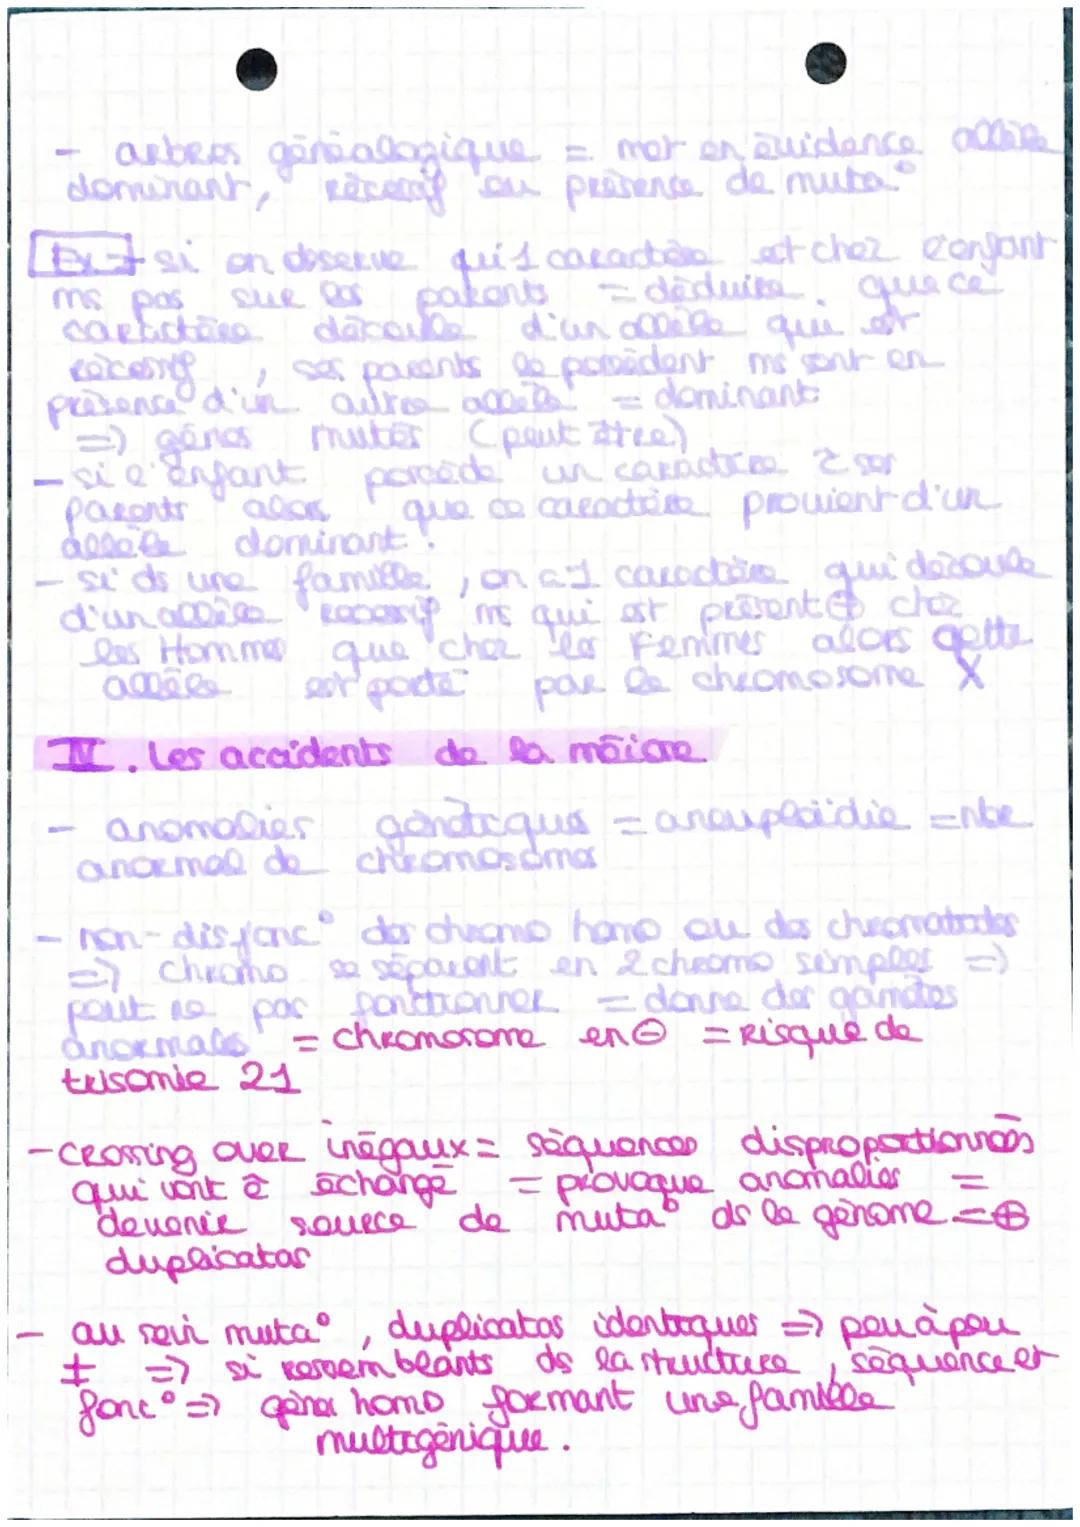 - arbres généalogique = met en évidence allèle
dominant, récessif ou présence de muta°
Ex → si on observe qu'1 caractère est chez l'enfant
ms pas sur les parents = déduire que ce
caractère découle d'un allèle qui est
récessif, ses parents le possèdent ms sont en
présence d'un autre allèle = dominant
=> gènes mutés (peut être)
- si l'enfant possède un caractère 2 ses
parents alors que ce caractère provient d'un
allèle dominant.
- si ds une famille, on a 1 caractère qui découle
d'un allèle récessif ms qui est présent ⊕ chez
les Hommes que chez les Femmes alors cette
allèle est porté par le chromosome X
IV. Les accidents de la méiose
- anomalies génétiques = aneuploïdie = nbe
anormal de chromosomes
- non-disjonc° des chromo homo ou des chromatides
=> chromo se séparent en 2 chromo simples =>
peut ne pas fonctionner = donne des gamètes
anormals = chromosome en ⊖ = Risque de
trisomie 21
- crossing over inégaux = séquences disproportionnées
qui vont ê échangé = provoque anomalies =
devenir source de muta° ds le génome = ⊕
duplicatas
- au sein muta°, duplicatas identiques => peu à peu
≠ => si ressemblants ds la structure, séquence et
fonc° => gènes homo formant une famille
multigénique.